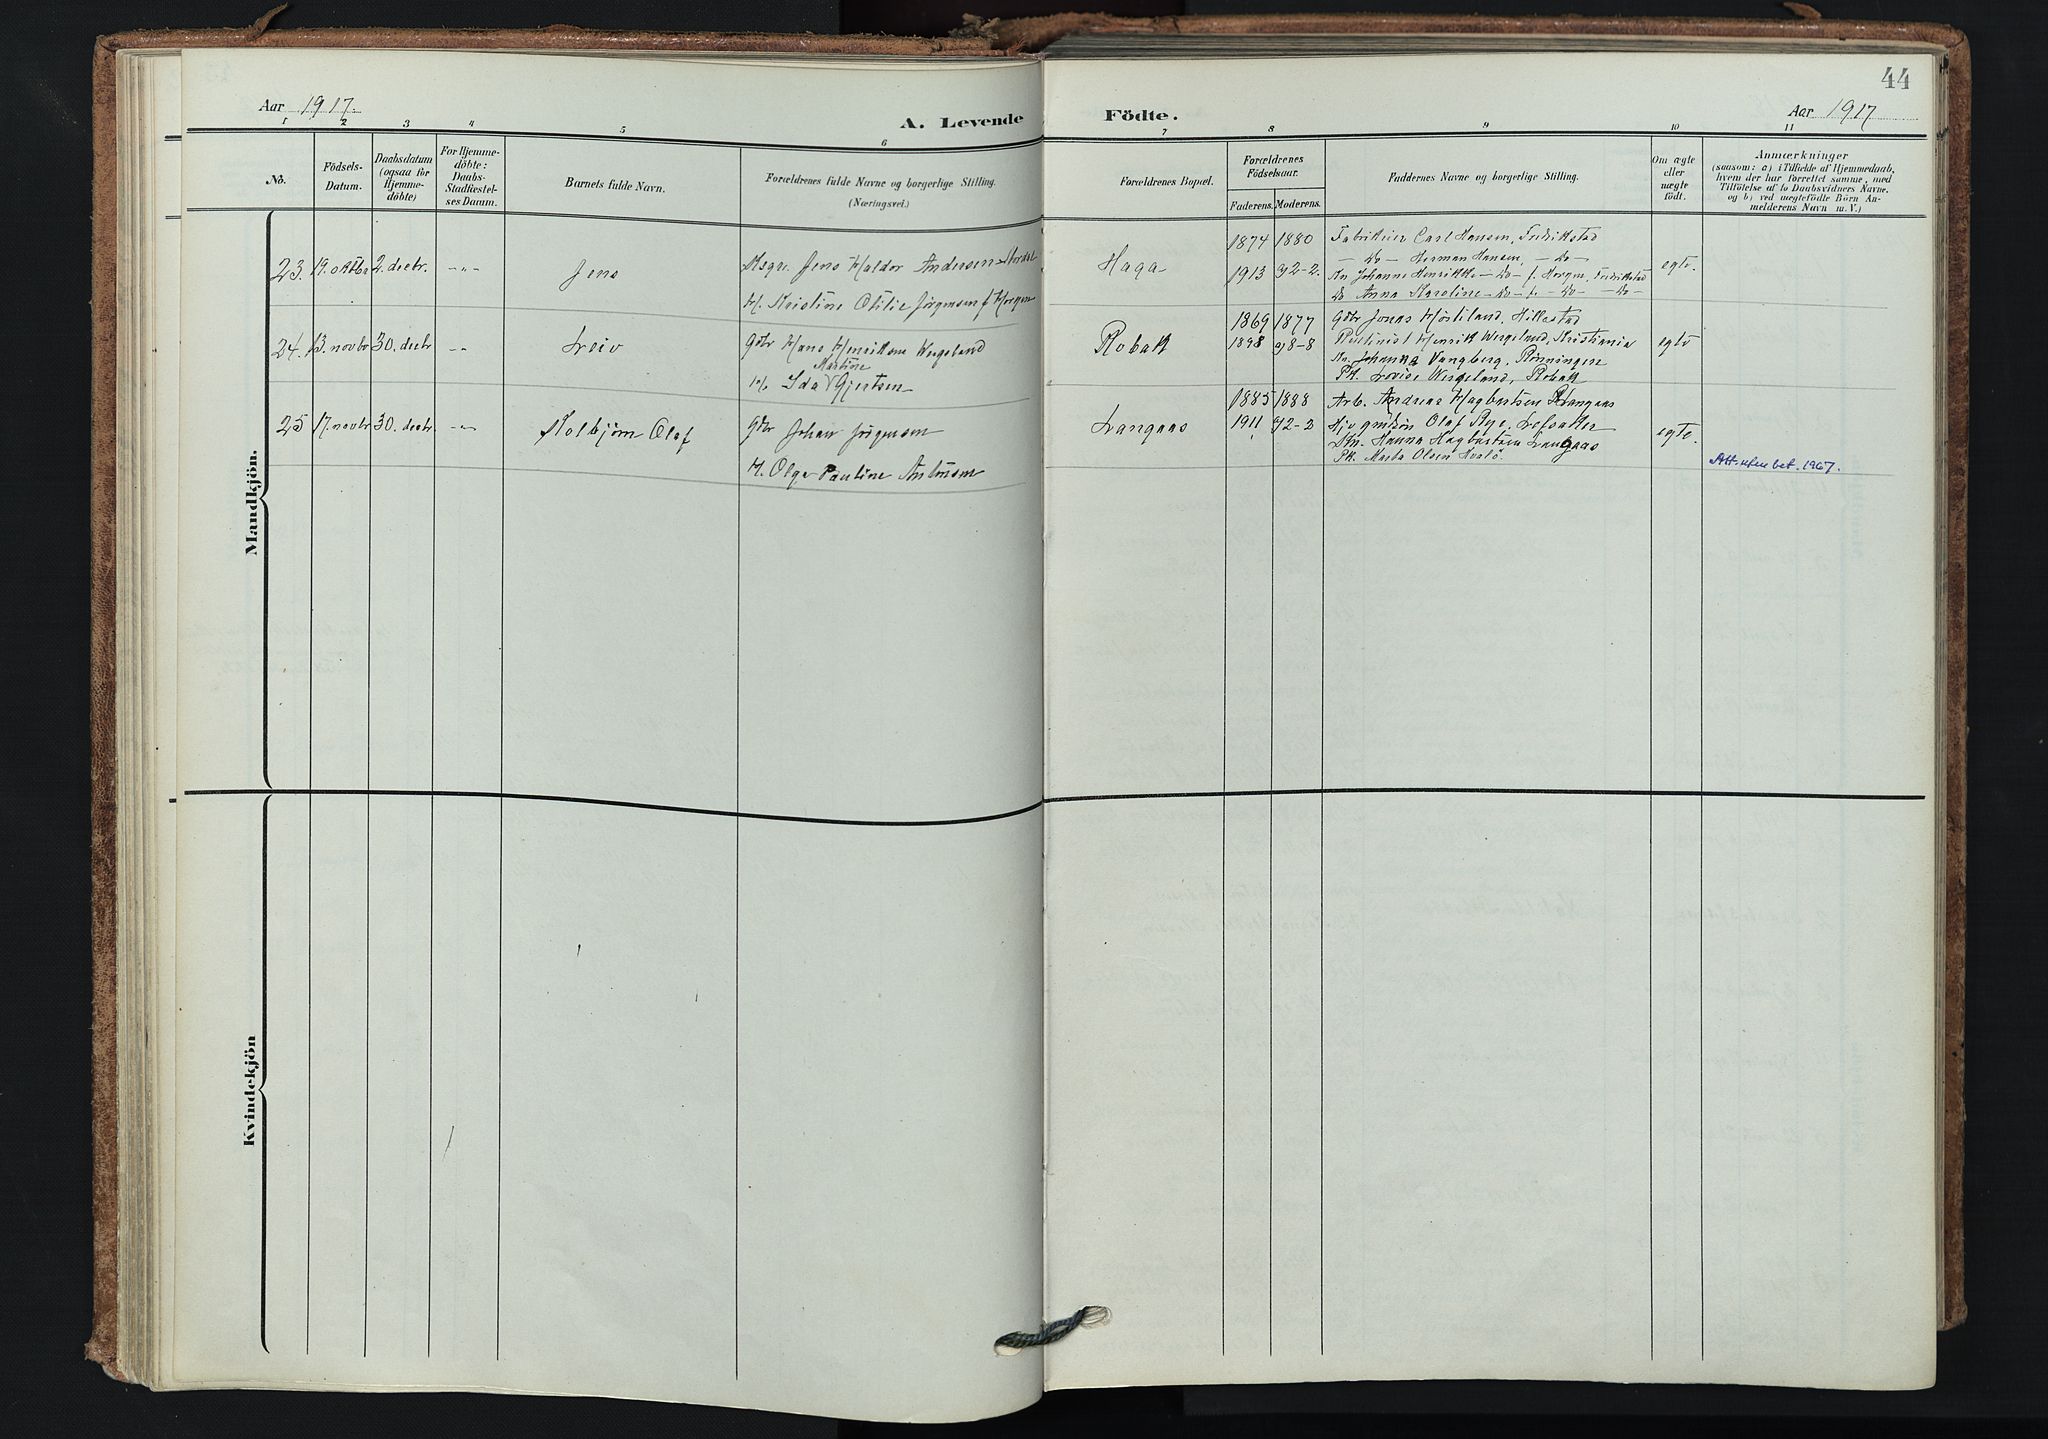 44
Aar 1917.
A. Levende Födte.
Aar 1917
1 2 3 4 5 6 7 8 9 10 11
No.
Födsels-Datum.
Daabsdatum (ogsaa for Hjemme-döbte)
For Hjemme-döbte: Daabs-Stadfæstel-ses Datum.
Barnets fulde Navn.
Forældrenes fulde Navne og borgerlige Stilling. (Næringsvei.)
Forældrenes Bopæl.
Forældrenes Födselsaar.
Faderens. Moderens.
Faddernes Navne og borgerlige Stilling.
Om ægte eller uægte födt.
Anmærkninger
(saasom: a) i Tilfælde af Hjemmedaab, hvem der har forrettet samme, med Tilföielse af to Daabsvidners Navne. og b) ved uægtefödte Börn An-melderens Navn m. V.)
Mandkjön.
23. 19. oktbr 2. decbr. -"- Jens
Jens Haldor Andersen
H. Kristine Otilie Jørgensen f. Horgen
Haga
1874 1880
1913 g2-2.
Fabrikeier Carl Hansen, Fredrikstad
- Do - Herman Hansen, - do -
Kn Johanne Henrikke - do - f. Horgen, Fredrikstad
Do Anna Karoline - do - f. - do - - do -
egte.
24. 13. novbr 30. decbr -"- Leiv
Gbr Hans Henriksen Wergeland
H. Ida Martine Gjertsen
Robak
1869 1877
1898 g8-8
Gbr Jonas Hillestad
Henrik Wergeland, Kristiania
Kn. Johanna Vangberg, Rønningen
Pk. Lovise Wergeland, Robak
egte
25 17. novbr 30. decbr. -"- Kolbjørn Olaf
Gbr Johan Jørgensen
H. Olga Pauline Antonsen
Langaas
1885 1888
1911 g2-2
Arb. Andreas Hagbartsen Langaas
Olaf Rye, Lofsaker
Hanna Hagbartsen Langaas
Pk. Marta Olsen
egte.
Att. uten bet. 1967.
Kvindekjön